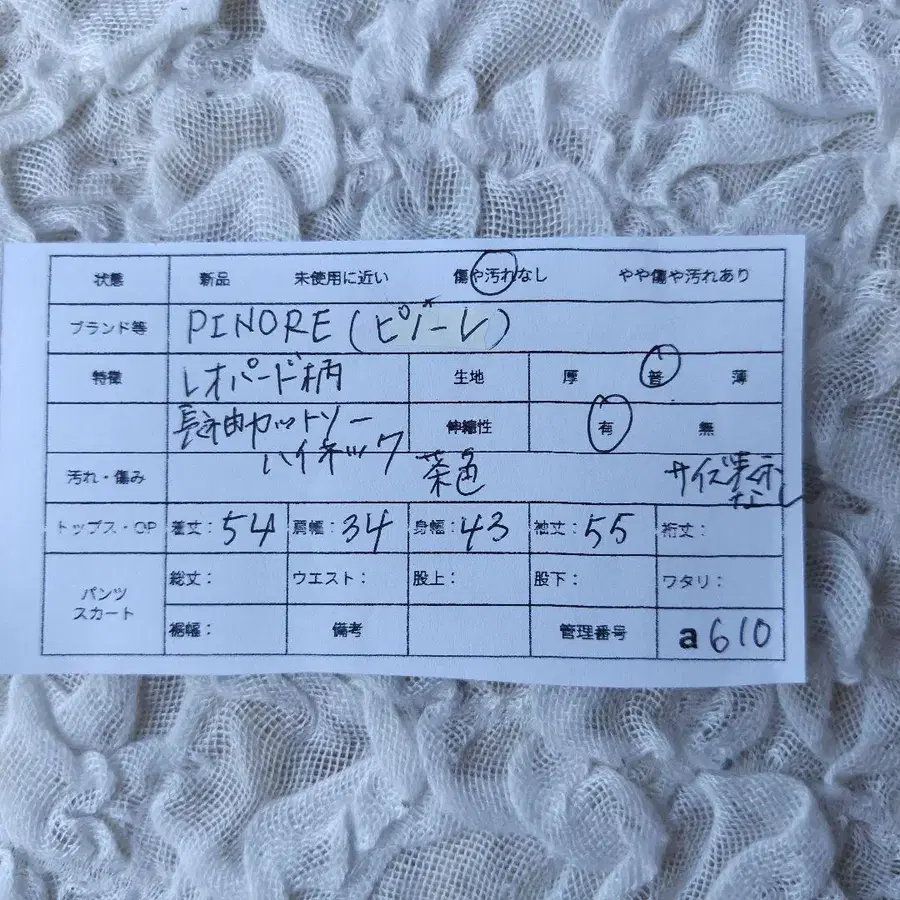 状態 新品 未使用に近い 傷や汚れなし やや傷や汚れあり
ブランド等 PINORE(ピノーレ)
特徴 レオパード柄 生地 厚 普 薄
長袖カットソー 伸縮性 有 無
ハイネック 茶色 サイズ表示
汚れ・傷み なし
トップス・OP 着丈: 54 肩幅: 34 身幅: 43 袖丈: 55 裄丈:
パンツ 総丈: ウエスト: 股上: 股下: ワタリ:
スカート
裾幅: 備考 管理番号 a610